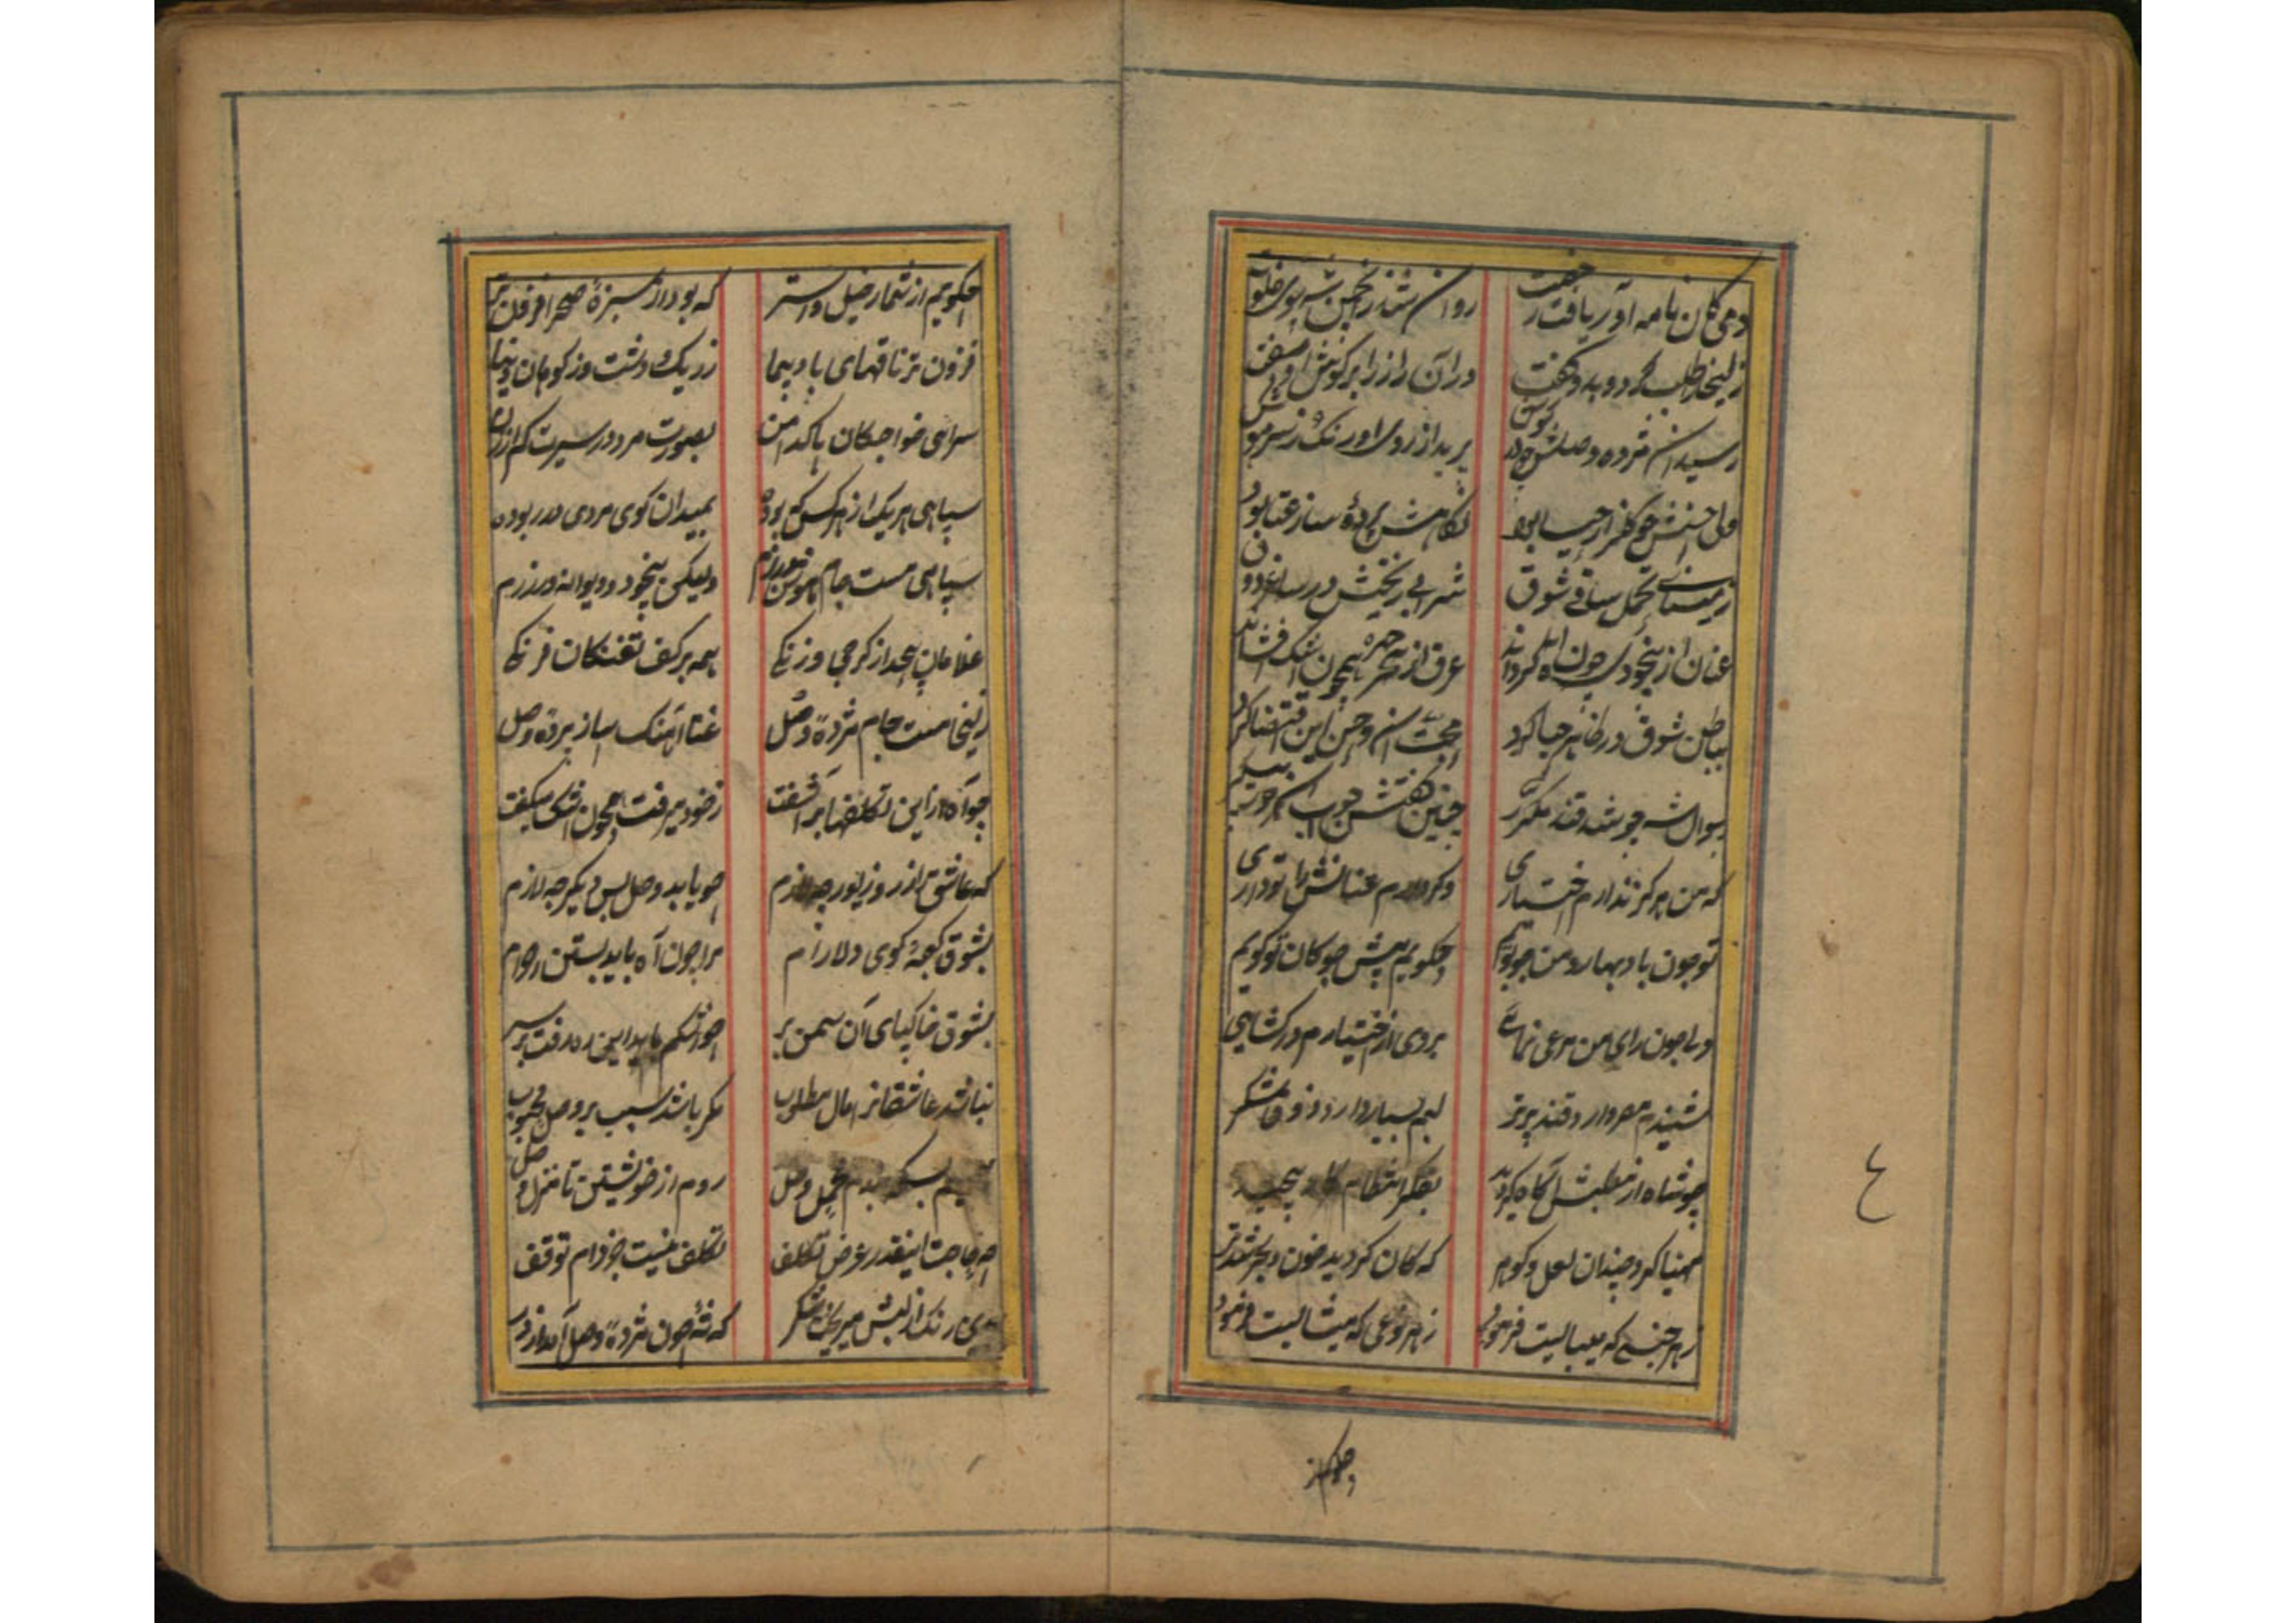 دمی کان نامه آور یافت رخصت روان شد زانجمن شه سوی خلوت
زلیخا را طلب کرد و بدو گفت در آن راز را بر گوش او سفت
رسید آن مژده وصلش چو در گوش پرید از روی او رنگ و ز سر هوش
ولی حسنش چو گلزار حیا بود نگاهش پرده ساز عتاب بود
ز مینای تحمل ساقی شوق شرابی ریختش در ساغر ذوق
عنان از بیخودی چون گرداند عرق از چهره همچون اشک افشاند
بباطن شوق در ظاهر حیا کرد محبت آن و حسن این اقتضا کرد
سوال شه چو شد قند مکرر چنین گفتش جواب آن
که من هرگز ندارم اختیاری وگر دارم عنانش را تو داری
تو چون باد بهار و من چو بویم چگویم پیش چوگان تو گویم
ولی چون رای من مرعی نمائی بروی اختیارم در گشایی
شنیدم مصر دارد قند برتر لبم بسیار دارد ذوق شکر
چو شاه از مطلبش آگاه گردید بفکر انتظام کار پیچید
مهیا کرد چندان لعل و گوهر که کان گردید خون و بحر شد تر
ز هر جنسی که میبایست فرمود ز هر نوعی که میشایست فرمود
چگویم از
چگویم از شمار خیل و استر که بود از سبزه صحرا فزون تر
فزون تر ناقهای بادپیما ز ریک دشت وز کوهان
سراسی خواجگان پاکدامن بصورت مرد و در سیرت کم از زن
سپاهی هریک از هرکس که بوده بمیدان گوی مردی در ربوده
سپاهی مست جام رزم ولیکن بیخود و دیوانه در رزم
غلامان بیحد از کرجی و زنگی همه بر کف تفنگان فرنگی
زلیخا مست جام مژده وصل غنا آهنگ ساز پرده وصل
چو آگاه از این تکلفها بر آشفت ز خود میرفت همچون اشک میگفت
که عاشق را ز زر و زیور چه لازم چو یابد وصل بس دیگر چه لازم
بشوق کعبه کوی دلارام مرا چون آه باید بستن احرام
بشوق خاکپای آن سمن بر چو اشکم باید این ره رفت بر سر
نباشد عاشقانرا مال مطلوب مگر باشد سبب بر وصل محبوب
بندم محمل وصل روم از خویشتن تا منزل وصل
چه حاجت اینقدر عرض تکلف تکلف نیست جز دام توقف
رنگ از لبش میریخت شکر که شه چون مژده وصل آمد از در
٤